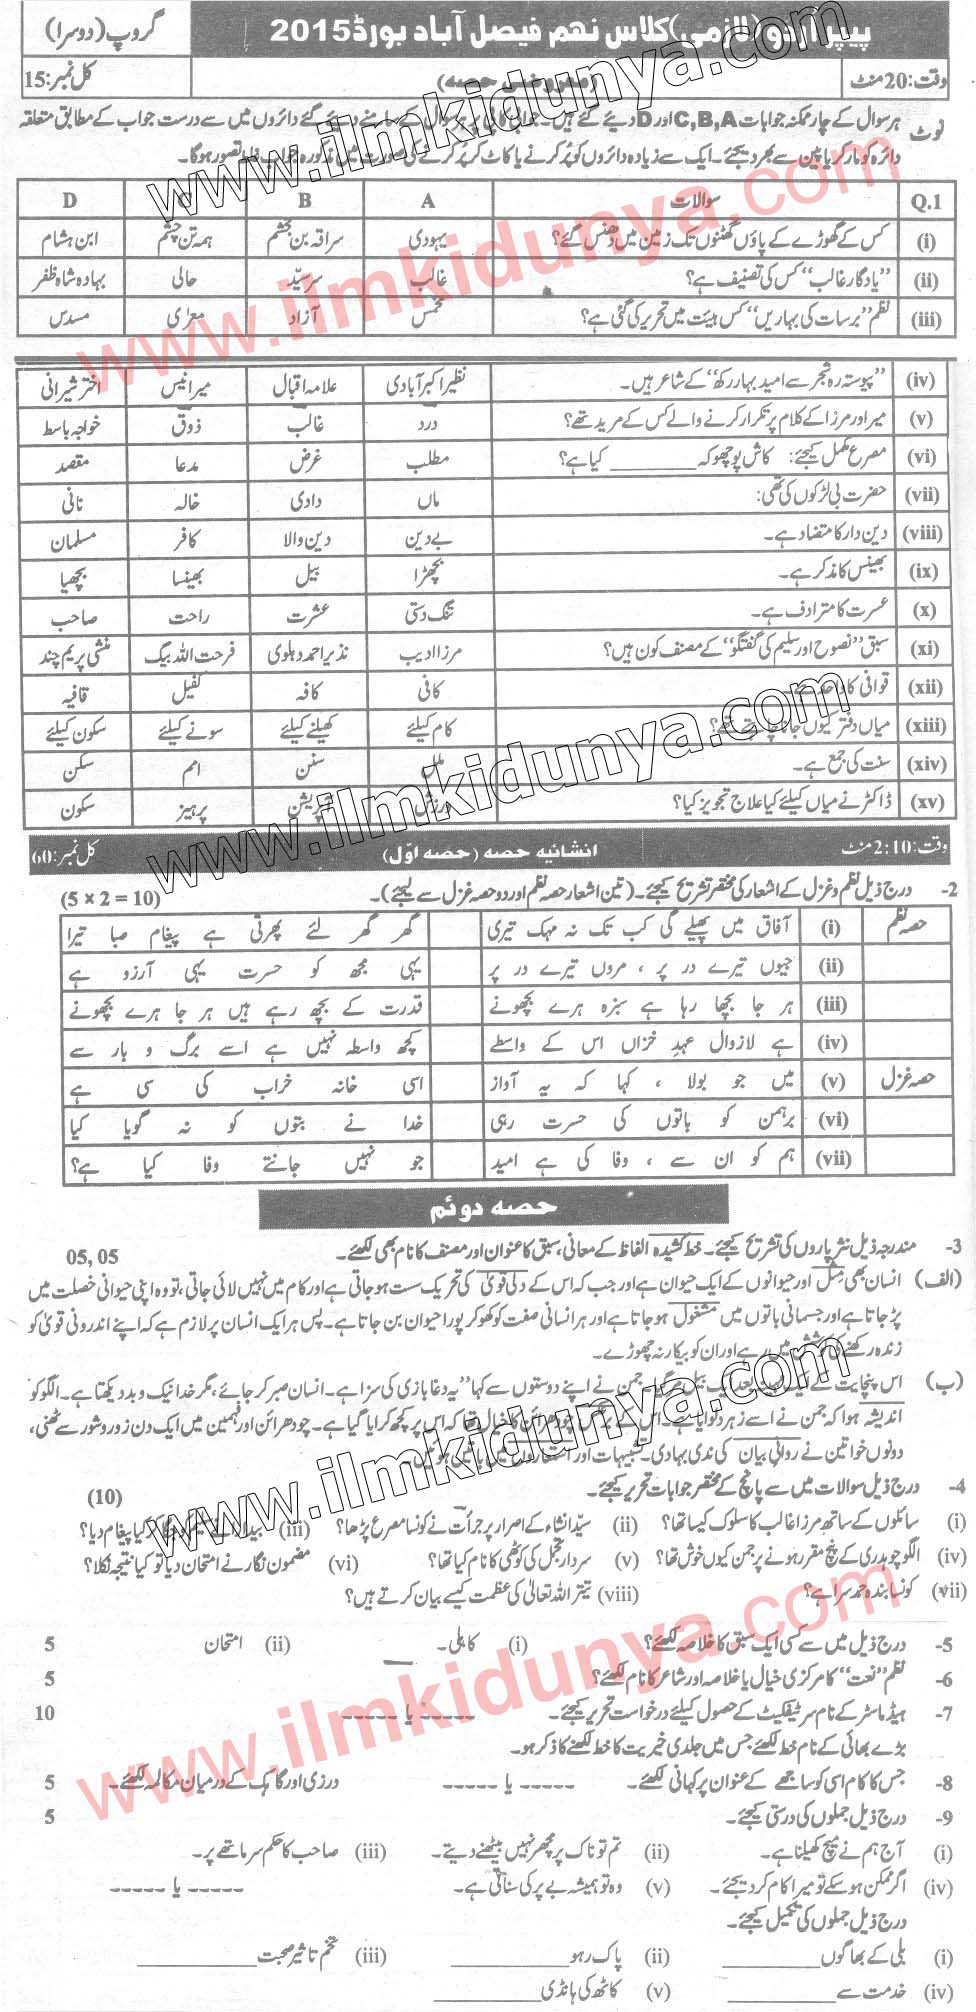 پیپر اُردو (لازمی) کلاس نهم فیصل آباد بورڈ 2015 گروپ (دوسرا)
وقت: 20 منٹ (معروضی حصہ) کل نمبر: 15
نوٹ ہر سوال کے چار ممکنہ جوابات C,B,A اور D دیئے گئے ہیں۔ جوابی کاپی پر ہر سوال کے سامنے دیئے گئے دائروں میں سے درست جواب کے مطابق متعلقہ
دائرہ کو مارکر یا پین سے بھر دیجئے۔ ایک سے زیادہ دائروں کو پُر کرنے یا کاٹ کر پُر کرنے کی صورت میں مذکورہ جواب غلط تصور ہوگا۔
Q.1 سوالات A B C D
(i) کس کے گھوڑے کے پاؤں گھٹنوں تک زمین میں دھنس گئے؟ یہودی سراقہ بن جعشم ہمہ تن چشم ابن ہشام
(ii) "یادگار غالب" کس کی تصنیف ہے؟ غالب سرسیّد حالی بہادہ شاہ ظفر
(iii) نظم "برسات کی بہاریں" کس ہیئت میں تحریر کی گئی ہے؟ مخمس آزاد معرّی مسدس
(iv) "پیوستہ رہ شجر سے امید بہار رکھ" کے شاعر ہیں۔ نظیر اکبر آبادی علامہ اقبال میر انیس اختر شیرانی
(v) میر اور مرزا کے کلام پر تکرار کرنے والے کس کے مرید تھے؟ درد غالب ذوق خواجہ باسط
(vi) مصرع مکمل کیجئے: کاش پوچھو کہ ________ کیا ہے؟ مطلب غرض مدعا مقصد
(vii) حضرت بی لڑکوں کی تھی: ماں دادی خالہ نانی
(viii) دین دار کا متضاد ہے۔ بے دین دین والا کافر مسلمان
(ix) بھینس کا مذکر ہے۔ بچھڑا بیل بھینسا بچھیا
(x) عسرت کا مترادف ہے۔ تنگ دستی عشرت راحت صاحب
(xi) سبق "نصوح اور سلیم کی گفتگو" کے مصنف کون ہیں؟ مرزا ادیب نذیر احمد دہلوی فرحت اللہ بیگ منشی پریم چند
(xii) قوافی کا واحد ہے۔ کافی کافہ کفیل قافیہ
(xiii) میاں دفتر کیوں جانا چاہتے تھے؟ کام کیلئے کھیلنے کیلئے سونے کیلئے سکون کیلئے
(xiv) سنت کی جمع ہے۔ ملل سنن امم سکن
(xv) ڈاکٹر نے میاں کیلئے کیا علاج تجویز کیا؟ ورزش آپریشن پرہیز سکون
وقت: 2:10 منٹ انشائیہ حصہ (حصہ اوّل) کل نمبر: 60
2- درج ذیل نظم و غزل کے اشعار کی مختصر تشریح کیجئے۔ (تین اشعار حصہ نظم اور دو حصہ غزل سے لیجئے)۔ (5 × 2 = 10)
حصہ نظم (i) آفاق میں پھیلے گی کب تک نہ مہک تیری گھر گھر لئے پھرتی ہے پیغام صبا تیرا
(ii) جیوں تیرے در پر ، مروں تیرے در پر یہی مجھ کو حسرت یہی آرزو ہے
(iii) ہر جا بچھا رہا ہے سبزہ ہرے بچھونے قدرت کے بچھ رہے ہیں ہر جا ہرے بچھونے
(iv) ہے لازوال عہد خزاں اس کے واسطے کچھ واسطہ نہیں ہے اسے برگ و بار سے
حصہ غزل (v) میں جو بولا ، کہا کہ یہ آواز اسی خانہ خراب کی سی ہے
(vi) برہمن کو باتوں کی حسرت رہی خدا نے بتوں کو نہ گویا کیا
(vii) ہم کو ان سے ، وفا کی ہے امید جو نہیں جانتے وفا کیا ہے؟
حصہ دوئم
3- مندرجہ ذیل نثر پاروں کی تشریح کیجئے۔ خط کشیدہ الفاظ کے معانی، سبق کا عنوان اور مصنف کا نام بھی لکھئے۔ 05, 05
(الف) انسان بھی مثل اور حیوانوں کے ایک حیوان ہے اور جب کہ اس کے دلی قویٰ کی تحریک سست ہو جاتی ہے اور کام میں نہیں لائی جاتی، تو وہ اپنی حیوانی خصلت میں
پڑ جاتا ہے اور جسمانی باتوں میں مشغول ہو جاتا ہے اور ہر انسانی صفت کو کھو کر پورا حیوان بن جاتا ہے۔ پس ہر ایک انسان پر لازم ہے کہ اپنے اندرونی قویٰ کو
زندہ رکھنے کی کوشش میں رہے اور ان کو بیکار نہ چھوڑے۔
(ب) اس پنچایت کے ایک بعد ایک بیل مر گیا۔ جمن نے اپنے دوستوں سے کہا "یہ دغا بازی کی سزا ہے۔ انسان صبر کر جائے، مگر خدا نیک و بد دیکھتا ہے۔ الگو کو
اندیشہ ہوا کہ جمن نے اسے زہر دلوایا ہے۔ اس کے برعکس چودھرائن کا خیال تھا کہ اس پر کچھ کرایا گیا ہے۔ چودھرائن اور فہمین میں ایک دن زور و شور سے ٹھنی،
دونوں خواتین نے روانیِ بیان کی ندی بہا دی۔ تشبیہات اور استعاروں میں باتیں ہوئیں۔
4- درج ذیل سوالات میں سے پانچ کے مختصر جوابات تحریر کیجئے۔ (10)
(i) سائلوں کے ساتھ مرزا غالب کا سلوک کیسا تھا؟ (ii) سیّد انشاء کے اصرار پر جرأت نے کونسا مصرع پڑھا؟ (iii) کیا پیغام دیا؟
(iv) الگو چوہدری کے پنچ مقرر ہونے پر جمن کیوں خوش تھا؟ (v) سردار تجمل کی کوٹھی کا نام کیا تھا؟ (vi) مضمون نگار نے امتحان دیا تو کیا نتیجہ نکلا؟
(vii) کونسا بندہ حمد سرا ہے؟ (viii) تیتر اللہ تعالیٰ کی عظمت کیسے بیان کرتے ہیں؟
5- درج ذیل میں سے کسی ایک سبق کا خلاصہ لکھئے؟ (i) کاہلی۔ (ii) امتحان 5
6- نظم "نعت" کا مرکزی خیال یا خلاصہ اور شاعر کا نام لکھئے؟ 5
7- ہیڈ ماسٹر کے نام سرٹیفکیٹ کے حصول کیلئے درخواست تحریر کیجئے۔ ----- یا ----- 10
بڑے بھائی کے نام خط لکھئے جس میں جلدی خیریت کا خط لکھنے کا ذکر ہو۔
8- جس کا کام اسی کو ساجھے کے عنوان پر کہانی لکھئے۔ ----- یا ----- درزی اور گاہک کے درمیان مکالمہ لکھئے۔ 5
9- درج ذیل جملوں کی درستی کیجئے۔ 5
(i) آج ہم نے میچ کھیلنا ہے۔ (ii) تم تو ناک پر مچھر نہیں بیٹھنے دیتے۔ (iii) صاحب کا حکم سر ماتھے پر۔
(iv) اگر ممکن ہو سکے تو میرا کام کر دیجئے۔ (v) وہ تو ہمیشہ بے پر کی سناتی ہے۔ ----- یا -----
درج ذیل جملوں کی تکمیل کیجئے۔
(i) بلی کے بھاگوں ________ (ii) پاک رہو ________ (iii) تخم تاثیر صحبت ________
(iv) خدمت سے ________ (v) کاٹھ کی ہانڈی ________
www.ilmkidunya.com
www.ilmkidunya.com
www.ilmkidunya.com
www.ilmkidunya.com
www.ilmkidunya.com